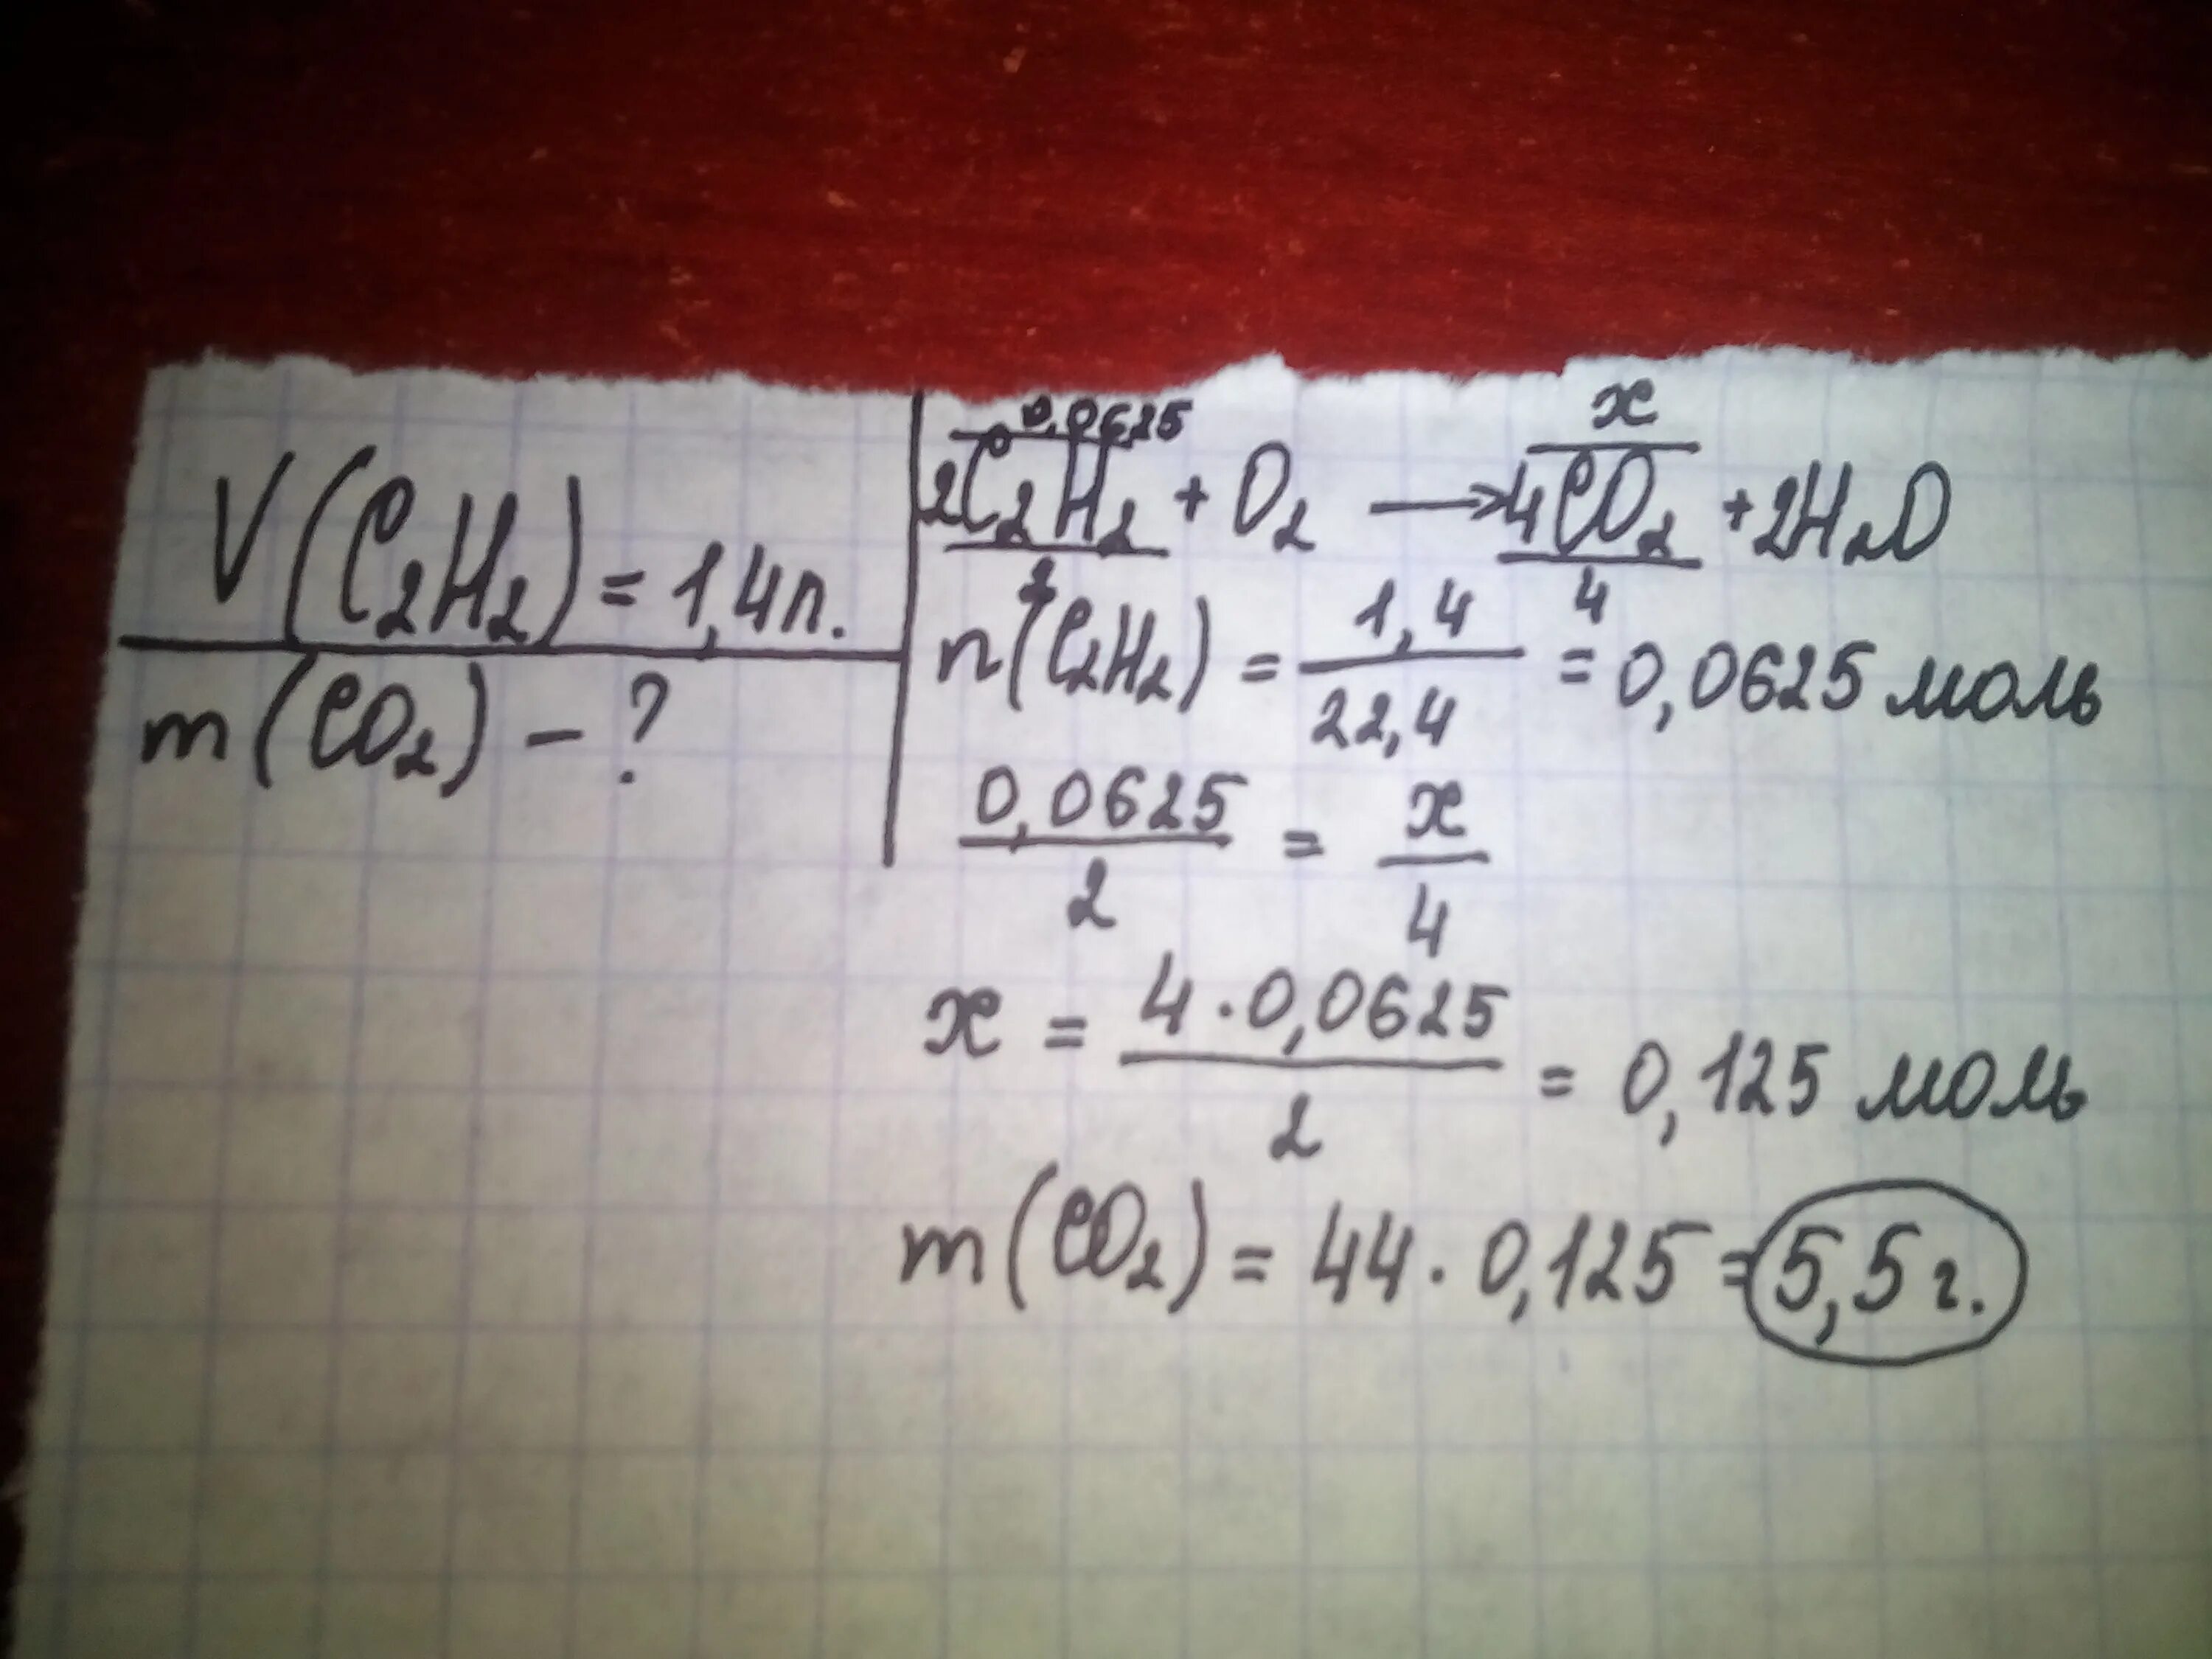 V(C₂H₂) = 1,4л.
m(CO₂) – ?
0,0625 x
2C₂H₂ + O₂ → 4CO₂ + 2H₂O
2 4
n(C₂H₂) = 1,4/22,4 = 0,0625 моль
0,0625/2 = x/4
x = 4·0,0625/2 = 0,125 моль
m(CO₂) = 44·0,125 = 5,5 г.